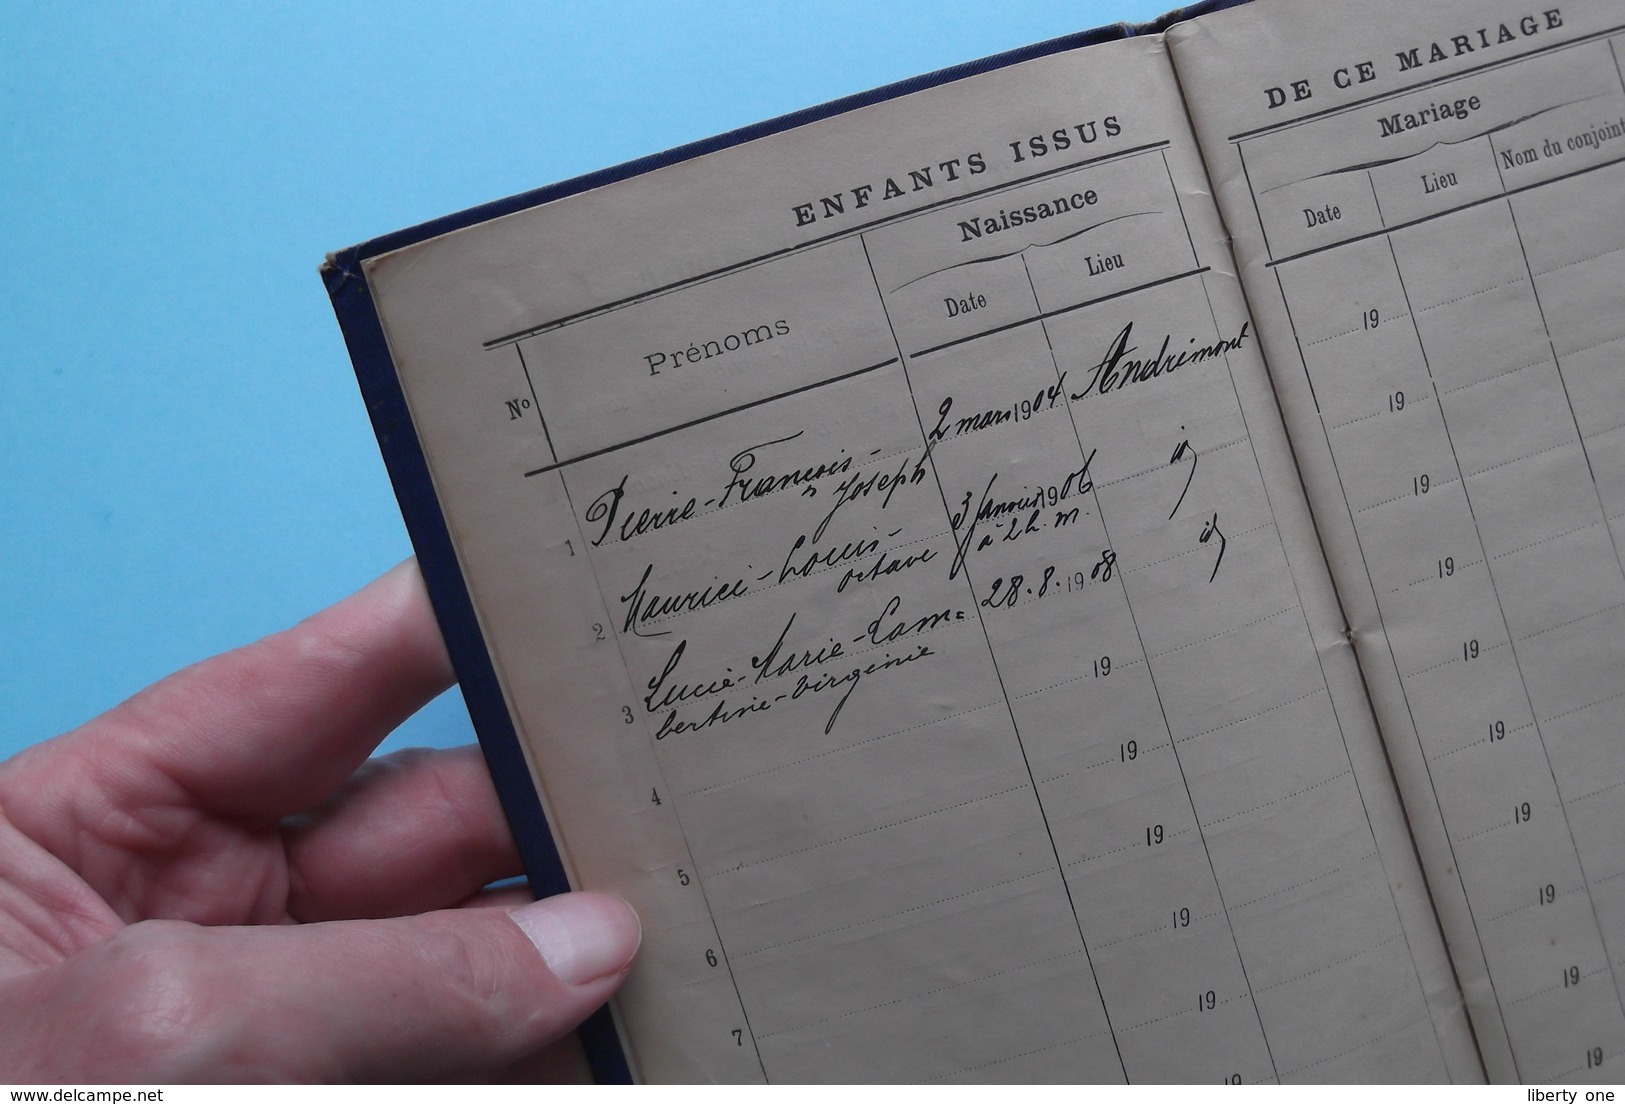 ENFANTS ISSUS
DE CE MARIAGE
Nº Prénoms Naissance
Date Lieu
Mariage
Date Lieu Nom du conjoint
1 Pierre-François- 2 mars 1904 Andrimont
Joseph
2 Maurice-Louis- 3 Janvier 1906 id
octave à 2 h. m.
3 Lucie-Marie-Lam= 28.8.1908 id
bertine-Virginie
4 19
5 19
6 19
7 19
19
19
19
19
19
19
19
19
19
19
19
19
www.delcampe.net
liberty one